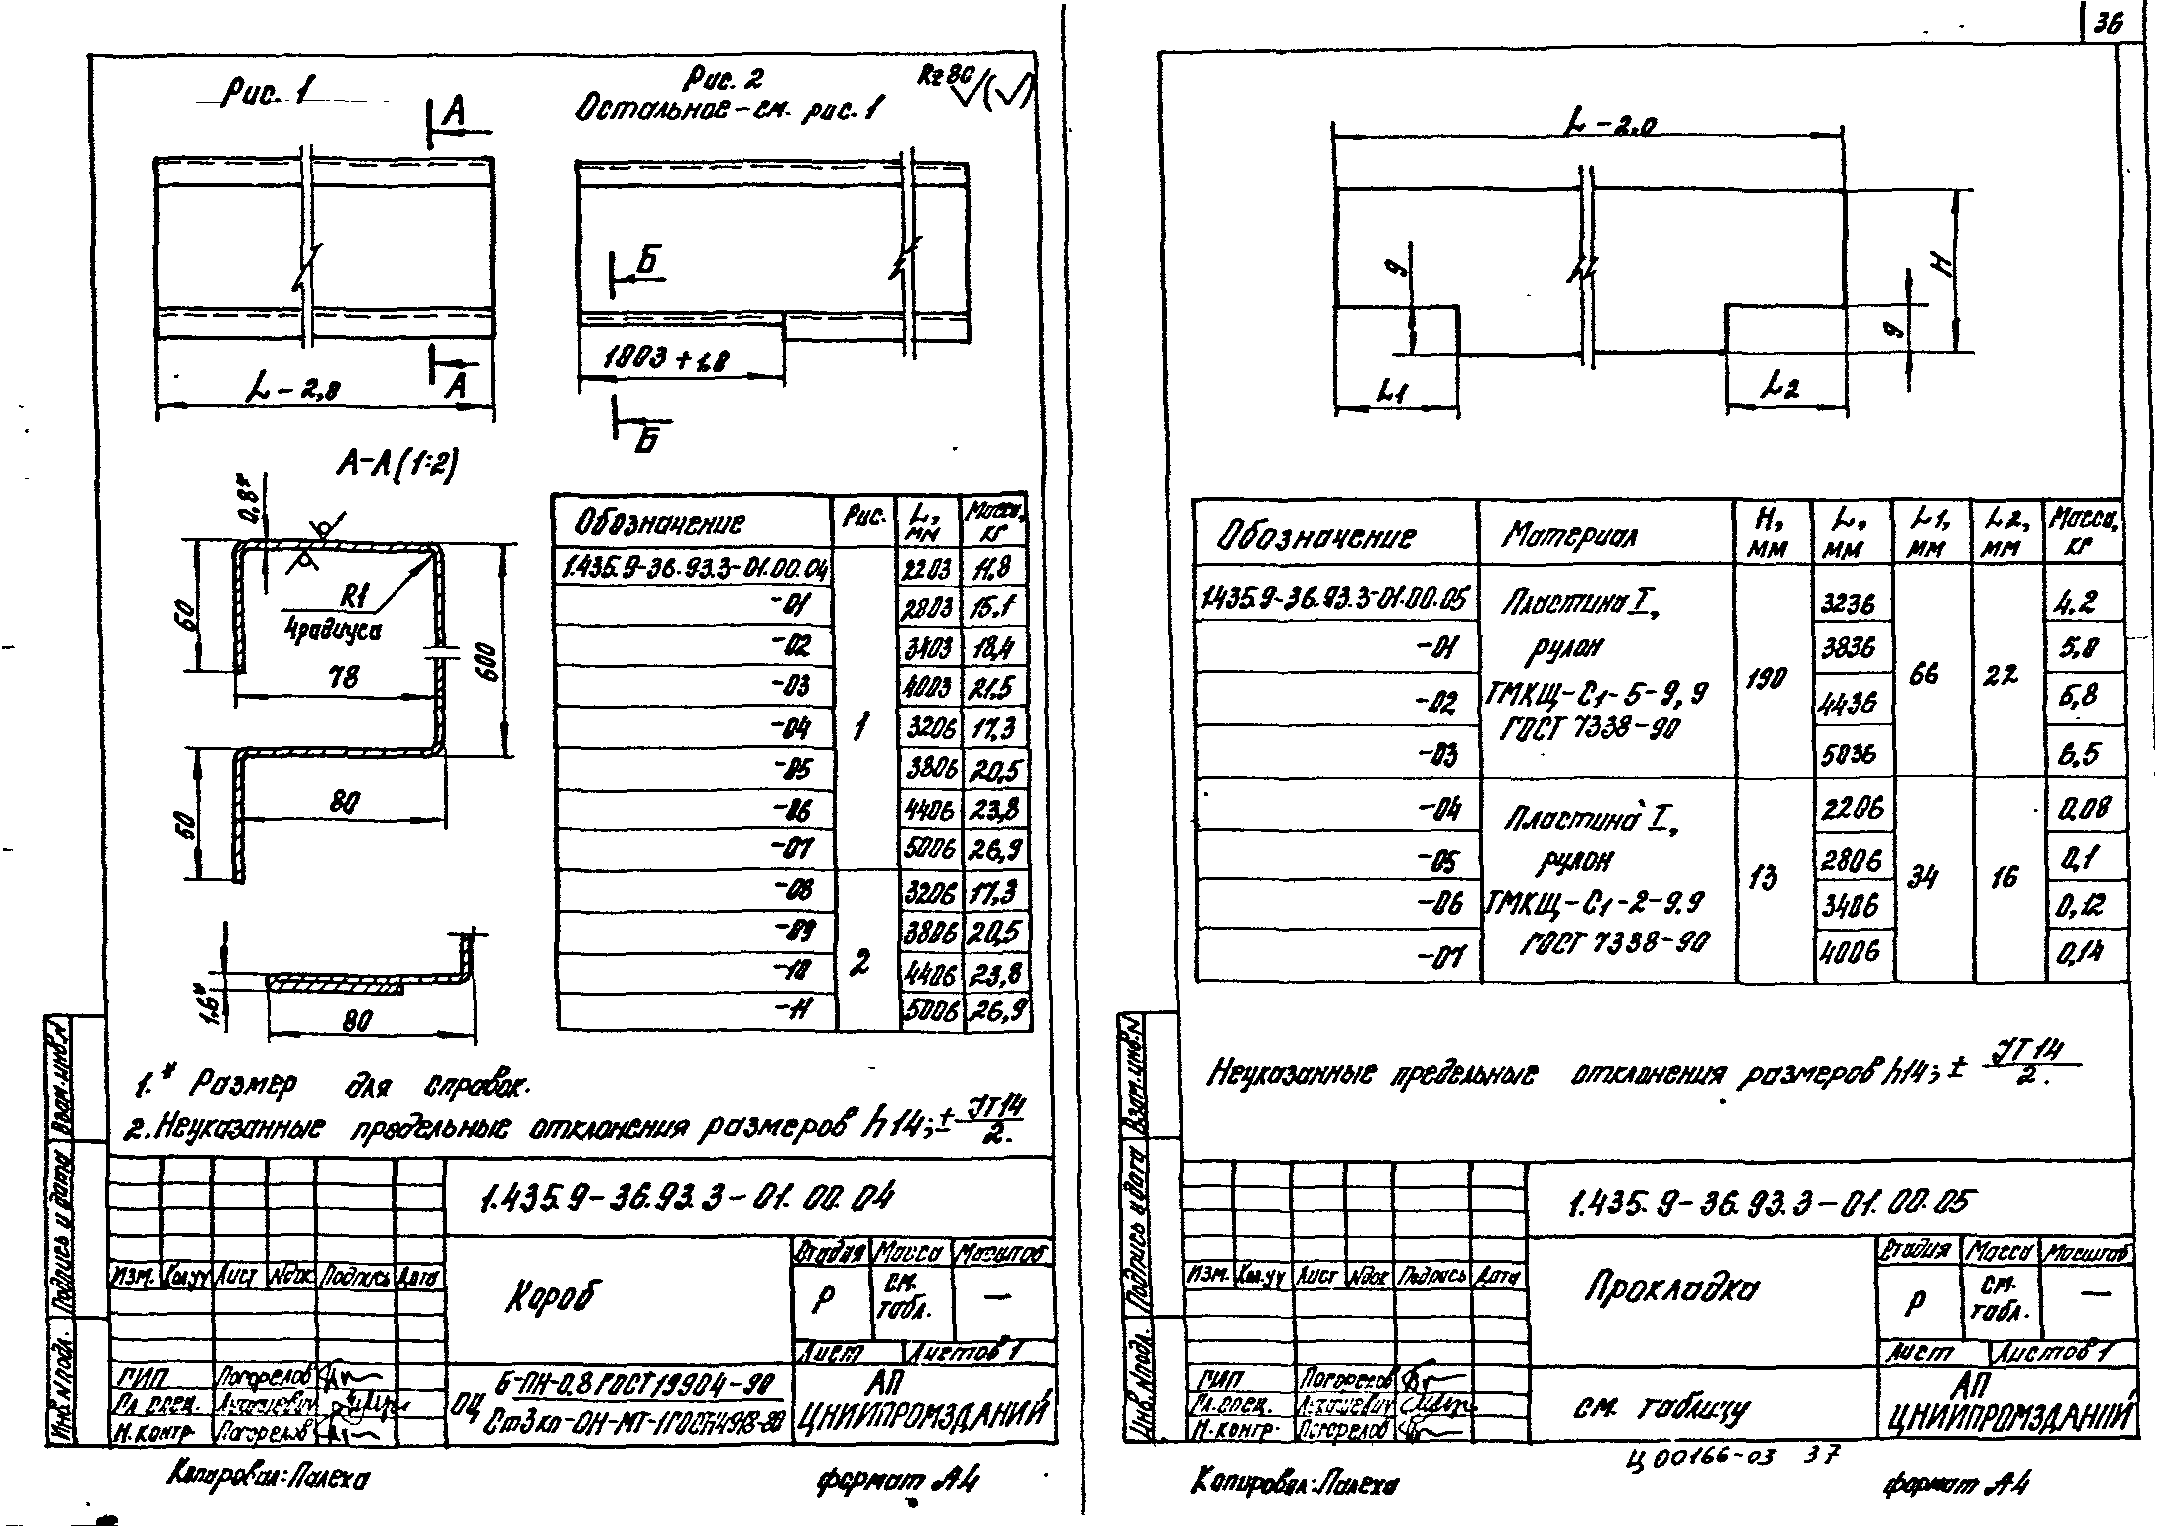 36
Рис. 1
А
Рис. 2
Остальное-см. рис. 1
Rz 80 (✓)
Б
1803 + 1,8
L - 2,8
А
Б
А-А (1:2)
0,8*
60
R1
4 радиуса
78
600
60
80
1.6*
80
Обозначение Рис. L, мм Масса, кг
1.435.9-36.93.3-01.00.04 1 2203 11.8
-01 2803 15.1
-02 3403 18,4
-03 4003 21.5
-04 3206 17.3
-05 3806 20,5
-06 4406 23,8
-07 5006 26,9
-08 2 3206 17.3
-09 3806 20,5
-10 4406 23,8
-11 5006 26,9
1.* Размер для справок.
2. Неуказанные предельные отклонения размеров h14; ± JT14/2.
1.435.9-36.93.3-01.00.04
Изм. Кол.уч Лист Nдок Подпись Дата
Короб
Стадия Масса Масштаб
Р см. табл. —
Лист Листов 1
ГИП Погорелов
Гл. спец.
Н. контр. Погорелов
ОЦ Б-ПН-0,8 ГОСТ 19904-90
АП
ЦНИИПРОМЗДАНИЙ
Взам.инв.N
Подпись и дата
Инв.N подл.
Копировал: Палеха
формат А4
L - 2,0
9
H
9
L1
L2
Обозначение Материал H, мм L, мм L1, мм L2, мм Масса, кг
1.435.9-36.93.3-01.00.05 Пластина I, рулон ТМКЩ-С1-5-9,9 ГОСТ 7338-90 190 3236 66 22 4.2
-01 3836 5,0
-02 4436 5,8
-03 5036 6,5
-04 Пластина I, рулон ТМКЩ-С1-2-9.9 ГОСТ 7338-90 13 2206 34 16 0,08
-05 2806 0,1
-06 3406 0,12
-07 4006 0,14
Неуказанные предельные отклонения размеров h14; ± JT14/2.
1.435.9-36.93.3-01.00.05
Изм. Кол.уч Лист Nдок Подпись Дата
Прокладка
Стадия Масса Масштаб
Р см. табл. —
Лист Листов 1
ГИП Погорелов
Гл. спец.
Н. контр. Погорелов
см. таблицу
АП
ЦНИИПРОМЗДАНИЙ
Взам.инв.N
Подпись и дата
Инв.N подл.
Ц 00166-03 37
Копировал: Палеха
формат А4